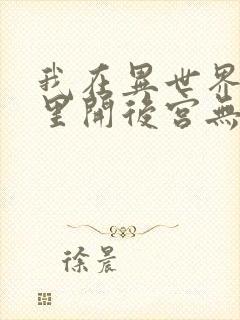 我在異世界
里開後宮無
徐晨